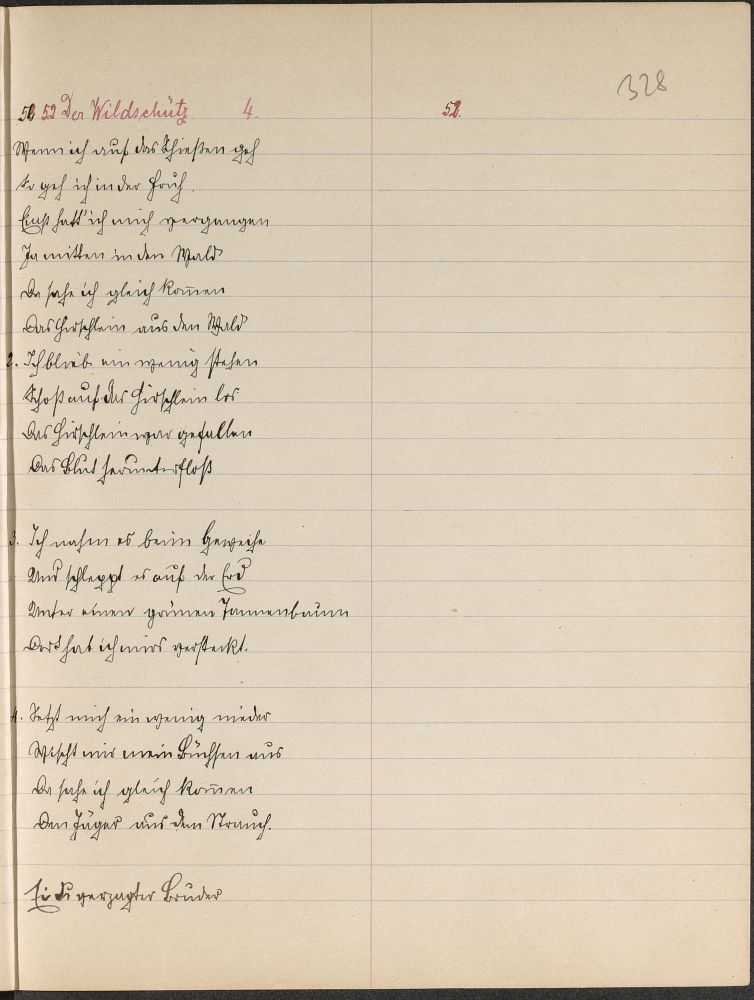 328
52 Der Wildschütz 4. 52.
Wenn ich auf das Schießen geh
So geh ich in der Fruh.
Einst hatt' ich mich vergangen
Ja mitten in den Wald
Da sahe ich gleich kom̅en
Das Hirschlein aus den Wald
2. Ich blieb ein wenig stehen
Schoß auf das Hirschlein los
Das Hirschlein war gefallen
Das Blut herunterfloß
3. Ich nahm es beim Geweihe
Und schleppt es auf der Erd
Unter einen grünen Tannenbaum
Dort hab ich mirs versteckt.
4. Setzt mich ein wenig nieder
Wischt mir mein Büchsen aus
Da sahe ich gleich kom̅en
Den Jäger aus dem Strauch.
Ei du verzagter Bruder